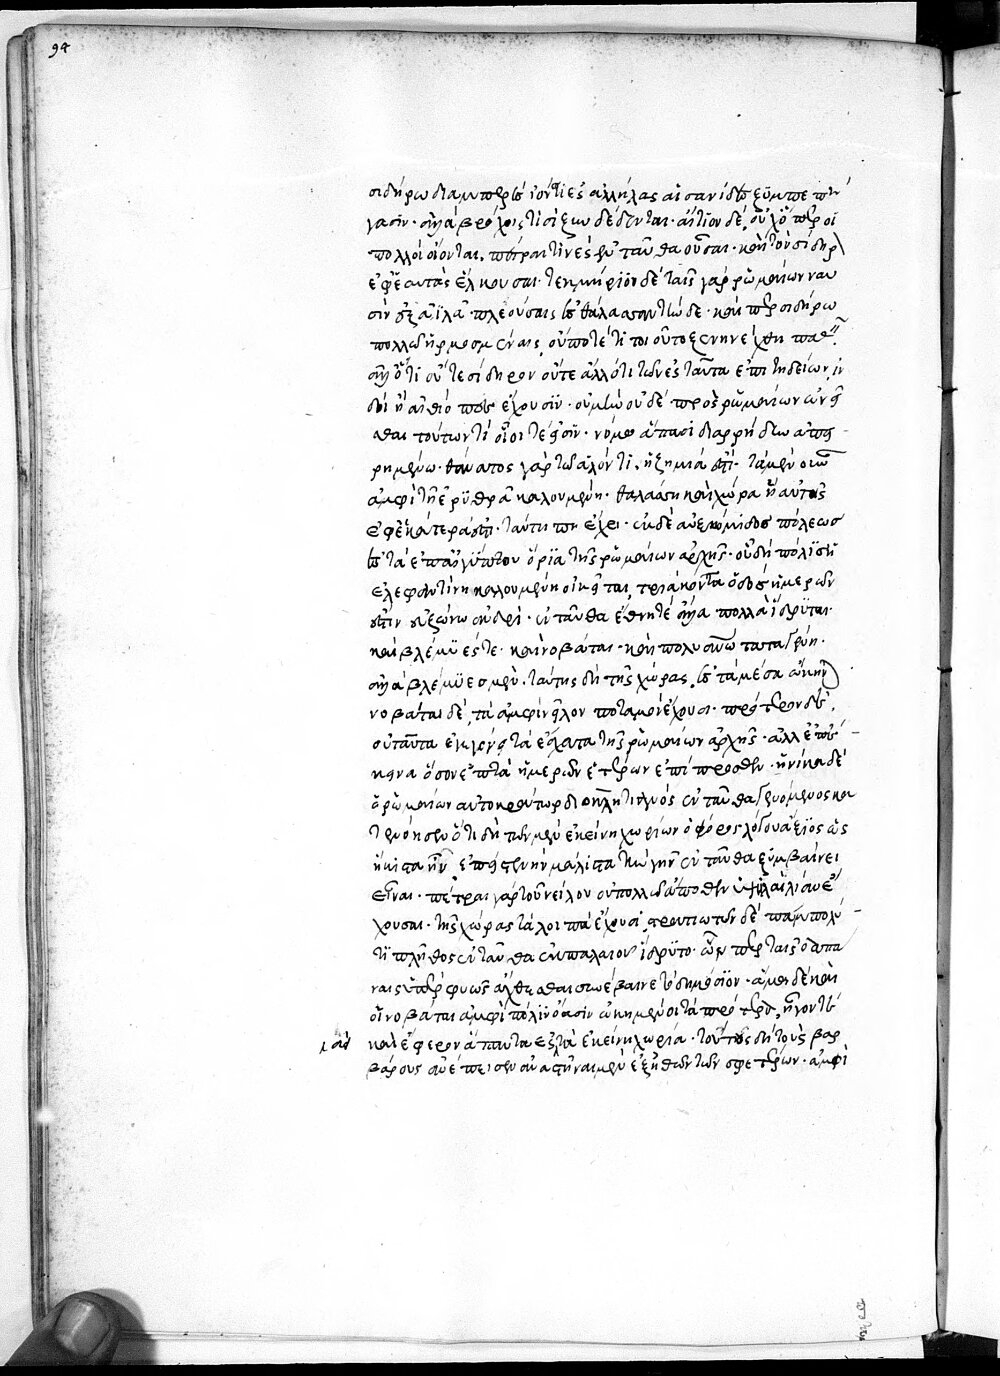 94
σιδήρω διαμπερὲς ἰόντι ἐς ἀλλήλας αἱ σανίδες ξυμπεπή
γασιν· ἀλλὰ βρόχοις τισὶ ξυνδέδενται· αἴτιον δὲ, οὐχ ὅπερ οἱ
πολλοὶ οἴονται, πέτραι τινὲς ἐνταῦθα οὖσαι· καὶ τὸν σίδηρ
ἐφἑαυτὰς ἕλκουσαι· τεκμήριον δὲ ταῖς γὰρ ῥωμαίων ναυ
σὶν ἐξ αἰλᾶ πλεούσαις ἐς θάλασσαν τήνδε· καίπερ σιδήρω
πολλῶ ἡρμοσμέναις, οὔποτέ τι τοιοῦτο ξυνηνέχθη παθεῖν.
ἀλλ ὅτι οὔτε σίδηρον οὔτε ἄλλό τι τῶν ἐς ταῦτα ἐπιτηδείων, ἰν
δοὶ ἢ αἰθίοπες ἔχουσιν· οὐμὴν οὐδὲ πρὸς ῥωμαίων ὠνεῖ
σθαι τούτων τὶ οἷοι τέ εἰσῖν· νόμω ἅπασι διαρρήδην ἀπει
ρημένω· θάνατος γὰρ τῶ ἁλόντι, ἡ ζημιά ἐστι· τὰ μὲν οὖν
ἀμφὶ τῆ ἐρυθρᾶ καλουμένη· θαλάσση καὶ χώρα ἣ αὐτῆς
ἐφἑκάτερά ἐστι· ταύτη πη ἔχει· ἐκ δὲ αὐξώμιδος πόλεως
ἐς τὰ ἐπαἰγύπτου ὅρια τῆς ῥωμαίων ἀρχῆς· οὗ δὴ πόλις ἡ
ἐλεφαντίνη καλουμένη οἰκεῖται, τριάκοντα ὁδὸς ἡμερῶν
ἐστιν εὐζώνω ἀνδρὶ· ἐνταῦθα ἔθνη τὲ ἄλλα πολλὰ ἵδρυται·
καὶ βλέμυές τε· καὶ νοβάται· καὶ πολυανθρωπότατα γένη·
ἀλλὰ βλέμυες μὲν· ταύτης δὴ τῆς χώρας, ἐς τὰ μέσα ὤκην
νοβάται δὲ, τὰ ἀμφὶ νεῖλον ποταμὸν ἔχουσι· πρότερον δὲ,
οὐταῦτα ἐγεγόνει τὰ ἔσχατα τῆς ῥωμαίων ἀρχῆς· ἀλλ ἐπέ
κεινα ὅσον ἑπτὰ ἡμερῶν ἑτέρων ἐπίπροσθεν· ἡνίκα δὲ
ὁ ῥωμαίων αὐτοκράτωρ διοκλητιανὸς ἐνταῦθα γενόμενος κα
τενόησεν ὅτι δὴ τῶν μὲν ἐκείνη χωρίων ὁ φόρος λόγου ἄξιος ὡς
ἥκιστα ἦν, ἐπεὶ στενὴν μάλιστα τὴν γῆν ἐνταῦθα ξυμβαίνει
εἶναι· πέτραι γὰρ τοῦ νείλου οὐπολλῶ ἄποθεν ὑψηλαὶ λίαν ἀνέ
χουσαι· τῆς χώρας τὰ λοιπὰ ἔχουσι, στρατιωτῶν δὲ πάμπολύ
τι πλῆθος ἐνταῦθα ἐκπαλαιοῦ ἵδρυτο· ὧν περ ταῖς δαπά
ναις ὑπερφυῶς ἄχθεσθαι συνέβαινε τὸ δημόσιον· ἅμα δὲ καὶ
οἱ νοβάται ἀμφὶ πόλιν ὄασιν ὠκημένοι τὰ πρότερα, ἦγον τὲ
καὶ ἔφερον ἅπαντα ἐς ἀεὶ τὰ ἐκείνη χωρία· τούτους δὴ τοὺς βαρ
βάρους ἀνέπεισεν ἀναστῆναι μὲν ἐξ ἠθῶν τῶν σφετέρων· ἀμφὶ